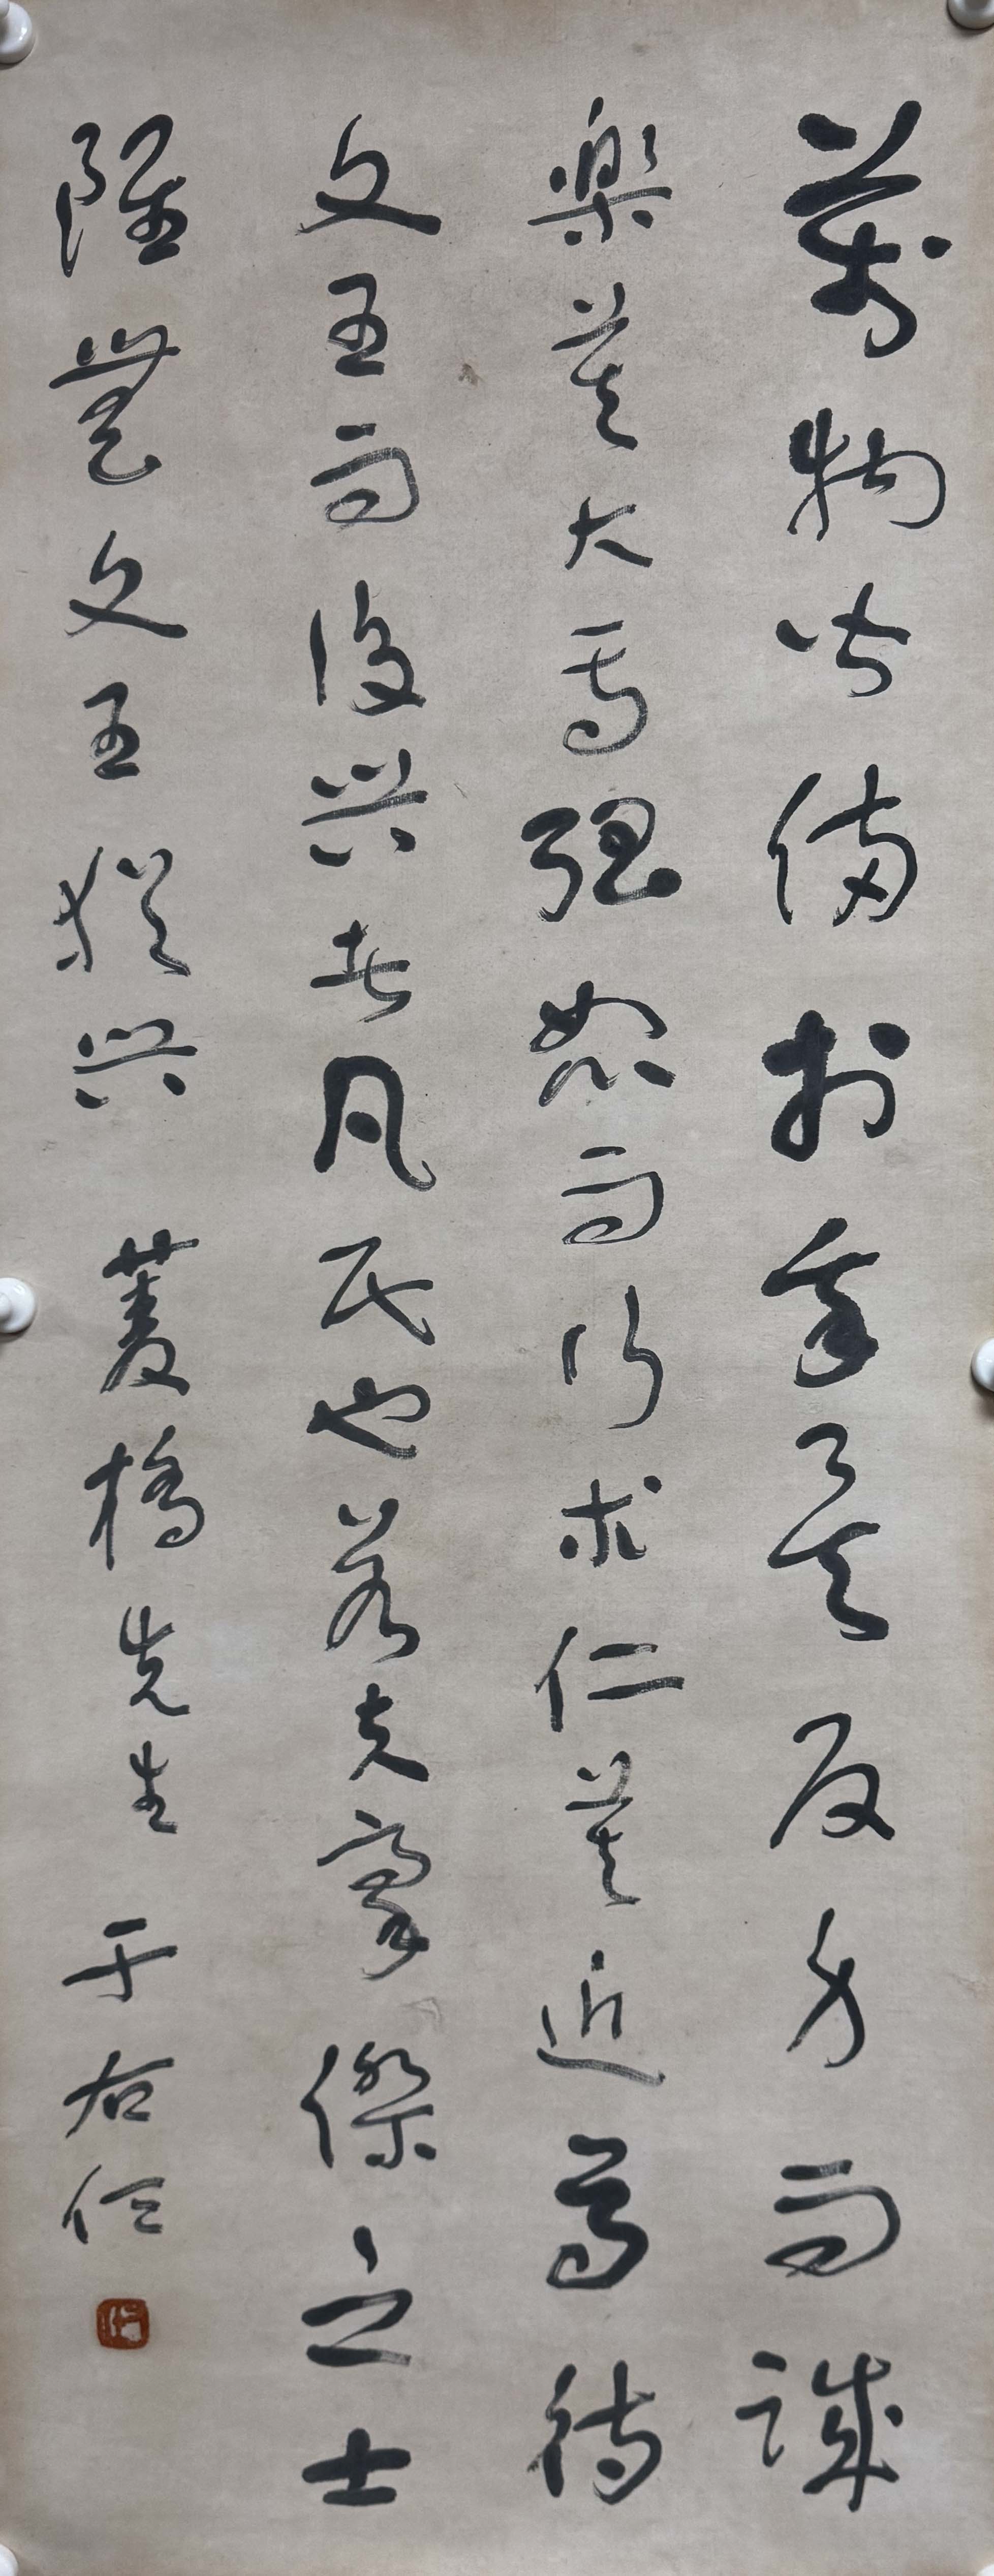 萬物皆備於我矣反身而誠
樂莫大焉強恕而行求仁莫近焉待
文王而後興者凡民也若夫豪傑之士
雖無文王猶興 菱橋先生 于右任